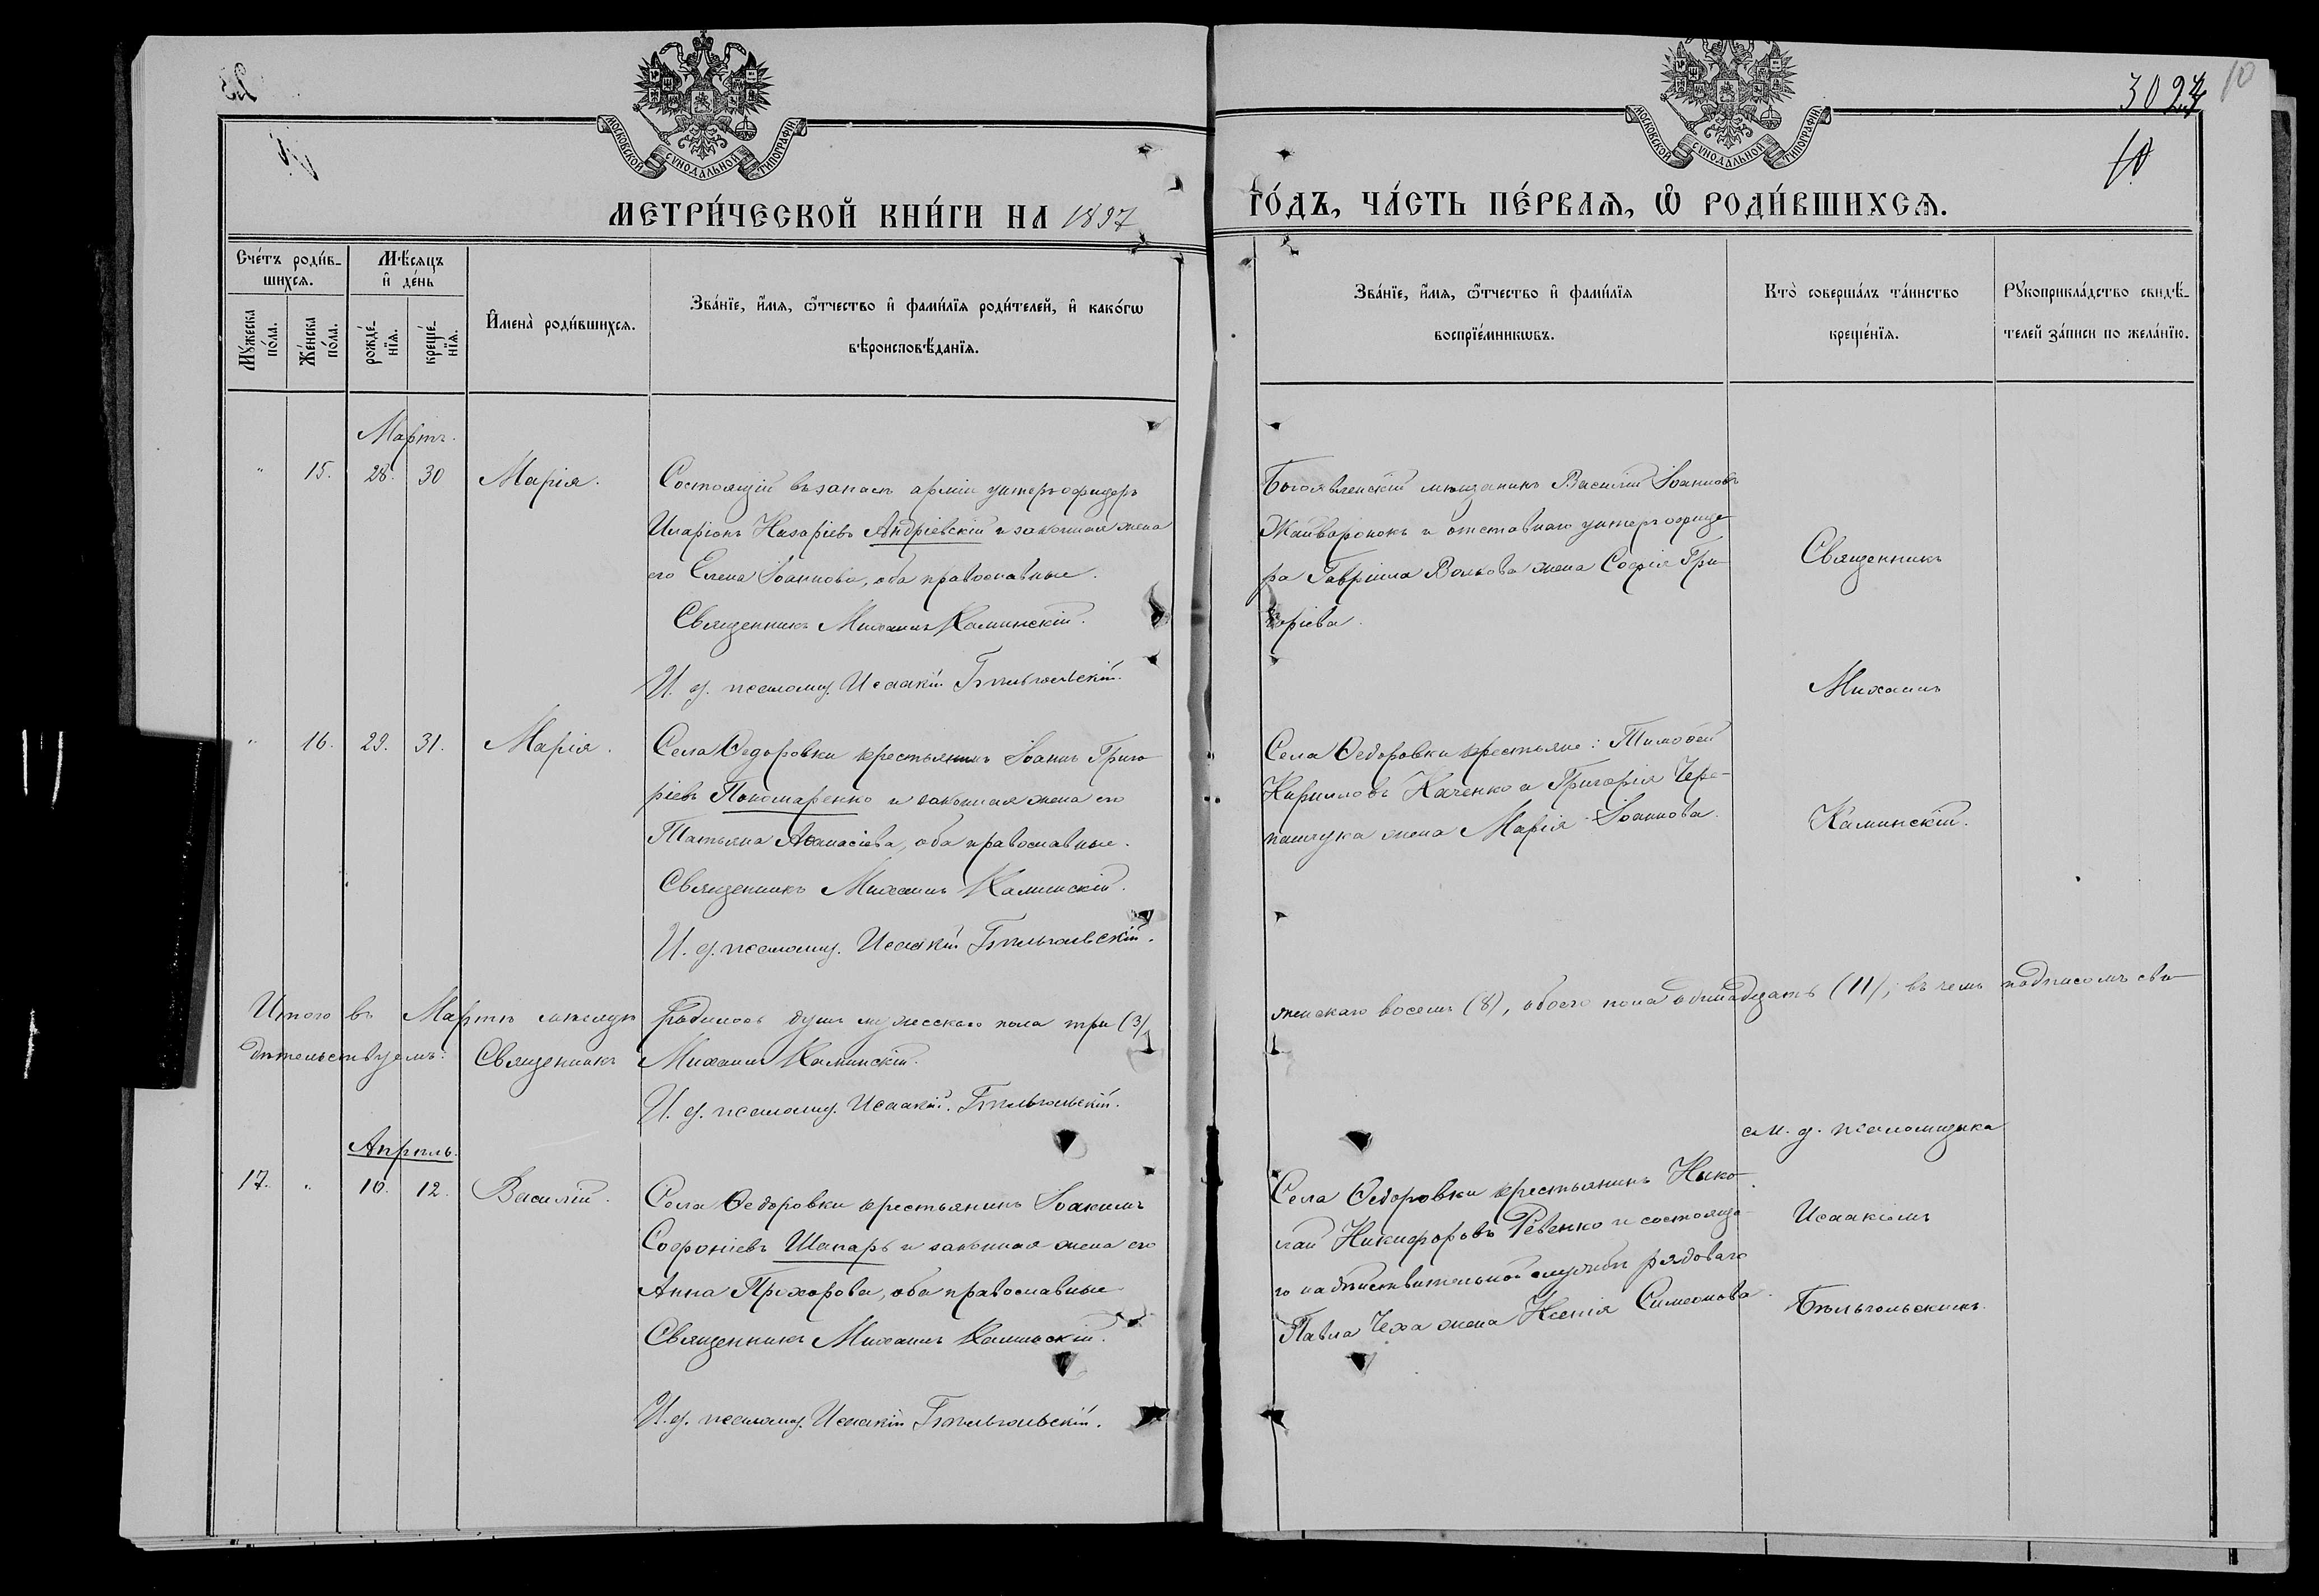 3024
10
10
МОСКОВСКОЙ СѴНОДАЛЬНОЙ ТИПОГРАФІИ
МОСКОВСКОЙ СѴНОДАЛЬНОЙ ТИПОГРАФІИ
МЕТРИ́ЧЕСКОЙ КНИ́ГИ НА 1897
ГО́ДЪ, ЧА́СТЬ ПЕ́РВАѦ, Ѡ҆ РОДИ́ВШИХСѦ.
Сче́тъ роди́в-
шихсѧ.
Мꙋ́жеска
по́ла.
Же́нска
по́ла.
Мѣ́сѧцъ
и҆ де́нь
рожде́-
нїѧ.
креще́-
нїѧ.
И҆мена̀ роди́вшихсѧ.
Зва́нїе, и҆́мѧ, ѻ҆́тчество и҆ фами́лїѧ роди́телей, и҆ како́гѡ
вѣроисповѣ́данїѧ.
Зва́нїе, и҆́мѧ, ѻ҆́тчество и҆ фами́лїѧ
воспрїе́мникѡвъ.
Кто̀ соверша́лъ та́инство
креще́нїѧ.
Рꙋкоприкла́дство свидѣ́-
телей за́писи по жела́нїю.
Мартъ.
" 15. 28. 30 Марія.
Состоящій въ запасѣ арміи унтеръ-офицеръ
Иларіонъ Назаріевъ Андріевскій и законная жена
его Елена Іоаннова, оба православные.
Священникъ Михаилъ Каминскій.
И. д. псаломщ. Исаакій Бѣльгольскій.
Богоявленскій мѣщанинъ Василій Іоанновъ
Жайворонокъ и отставнаго унтеръ офице-
ра Гавріила Волкова жена Софія Гри-
горіева.
Священникъ
Михаилъ
Каминскій.
" 16. 29. 31. Марія.
Села Ѳедоровки крестьянинъ Іоаннъ Григо-
ріевъ Пономаренко и законная жена его
Татьяна Аѳанасіева, оба православные.
Священникъ Михаилъ Каминскій.
И. д. псаломщ. Исаакій Бѣльгольскій.
Села Ѳедоровки крестьяне: Тимоѳей
Кирилловъ и Григорія Чере-
жена Марія Іоаннова.
Итого въ Мартѣ мѣсяцѣ родилось душъ мужескаго пола три (3),
женскаго восемь (8), обоего пола одинадцать (11), въ чемъ подписомъ сви-
дѣтельствуемъ: Священникъ Михаилъ Каминскій.
И. д. псаломщ. Исаакій Бѣльгольскій.
Апрѣль.
17. " 10. 12. Василій.
Села Ѳедоровки крестьянинъ Іоакимъ
Софроніевъ Шапарь и законная жена его
Анна Прохорова, оба православные
Священникъ Михаилъ Каминскій.
И. д. псаломщ. Исаакій Бѣльгольскій.
Села Ѳедоровки крестьянинъ Нико-
лай Никифоровъ Ревенко и состояща-
го на дѣйствительной службѣ рядоваго
Павла Чеха жена Ксенія Симеонова.
с и. д. псаломщика
Исаакіемъ
Бѣльгольскимъ.